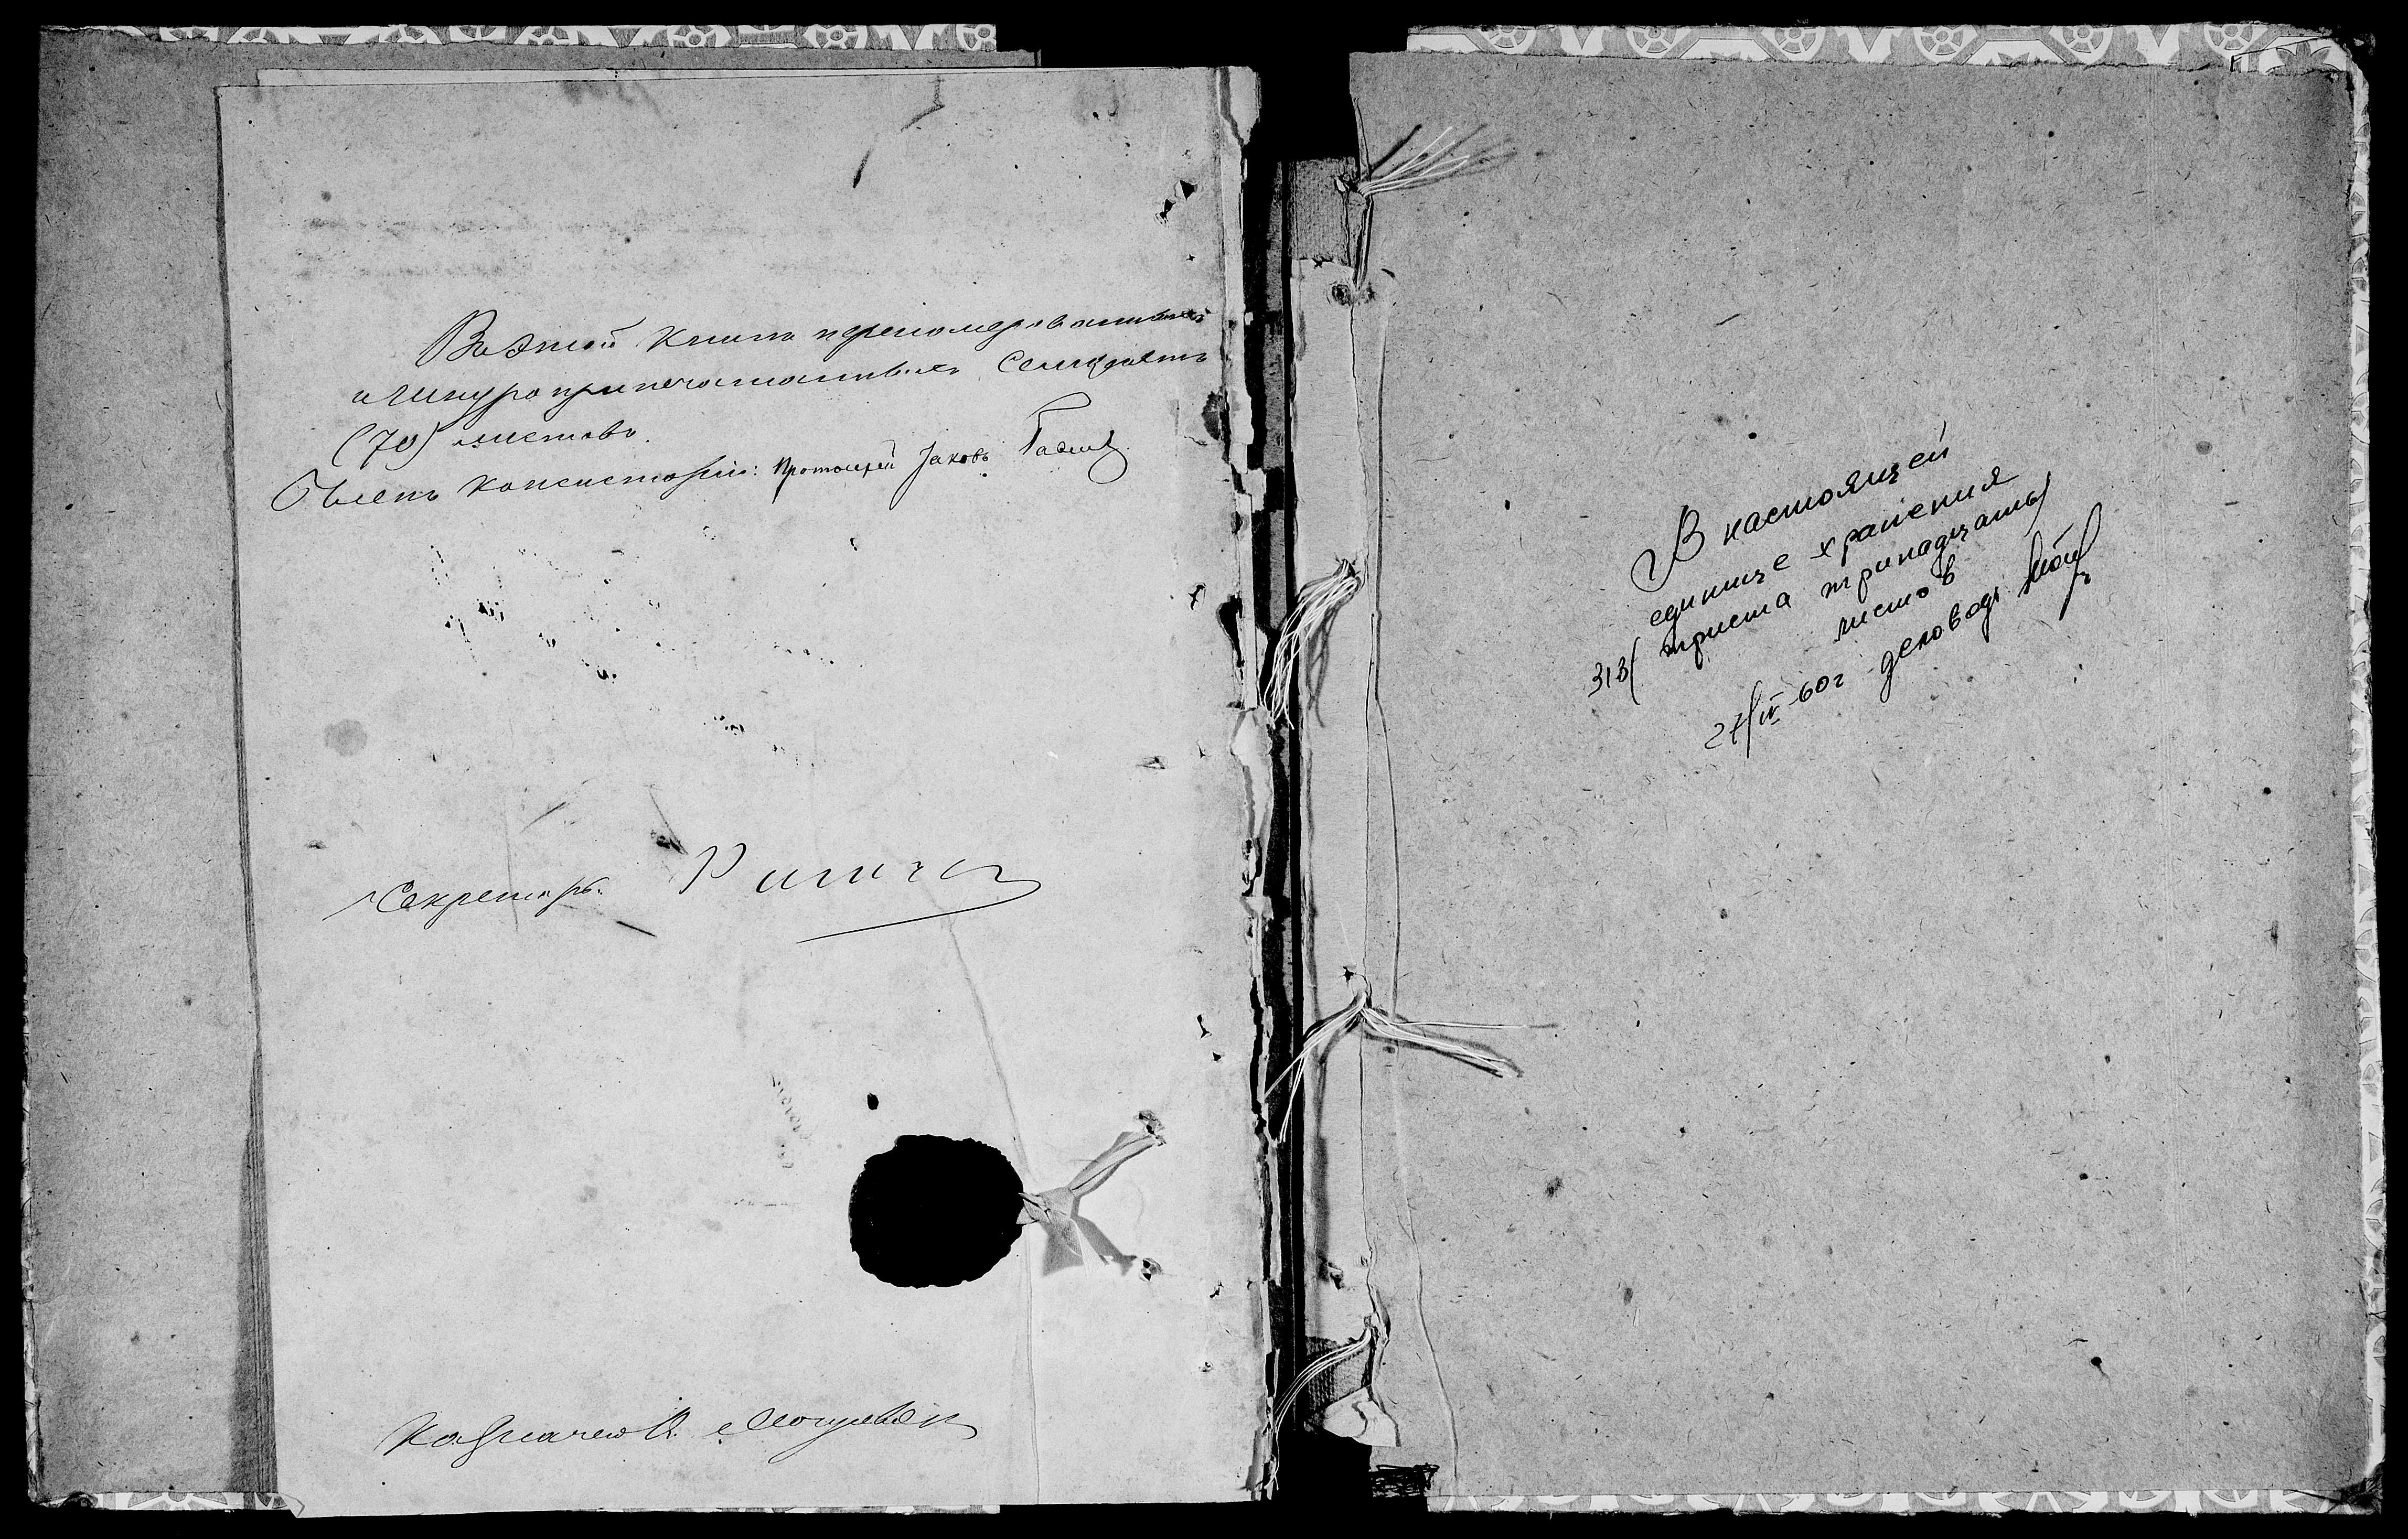 Въ этой книгѣ перенумерованныхъ
и шнуроприпечатанныхъ семьдесятъ
(70) листовъ.
Членъ Консисторіи: Протоіерей Іаковъ
Секретарь
Казначей
В настоящей
единице хранения
313 (триста тринадцать)
листов
27/IV-60г деловод